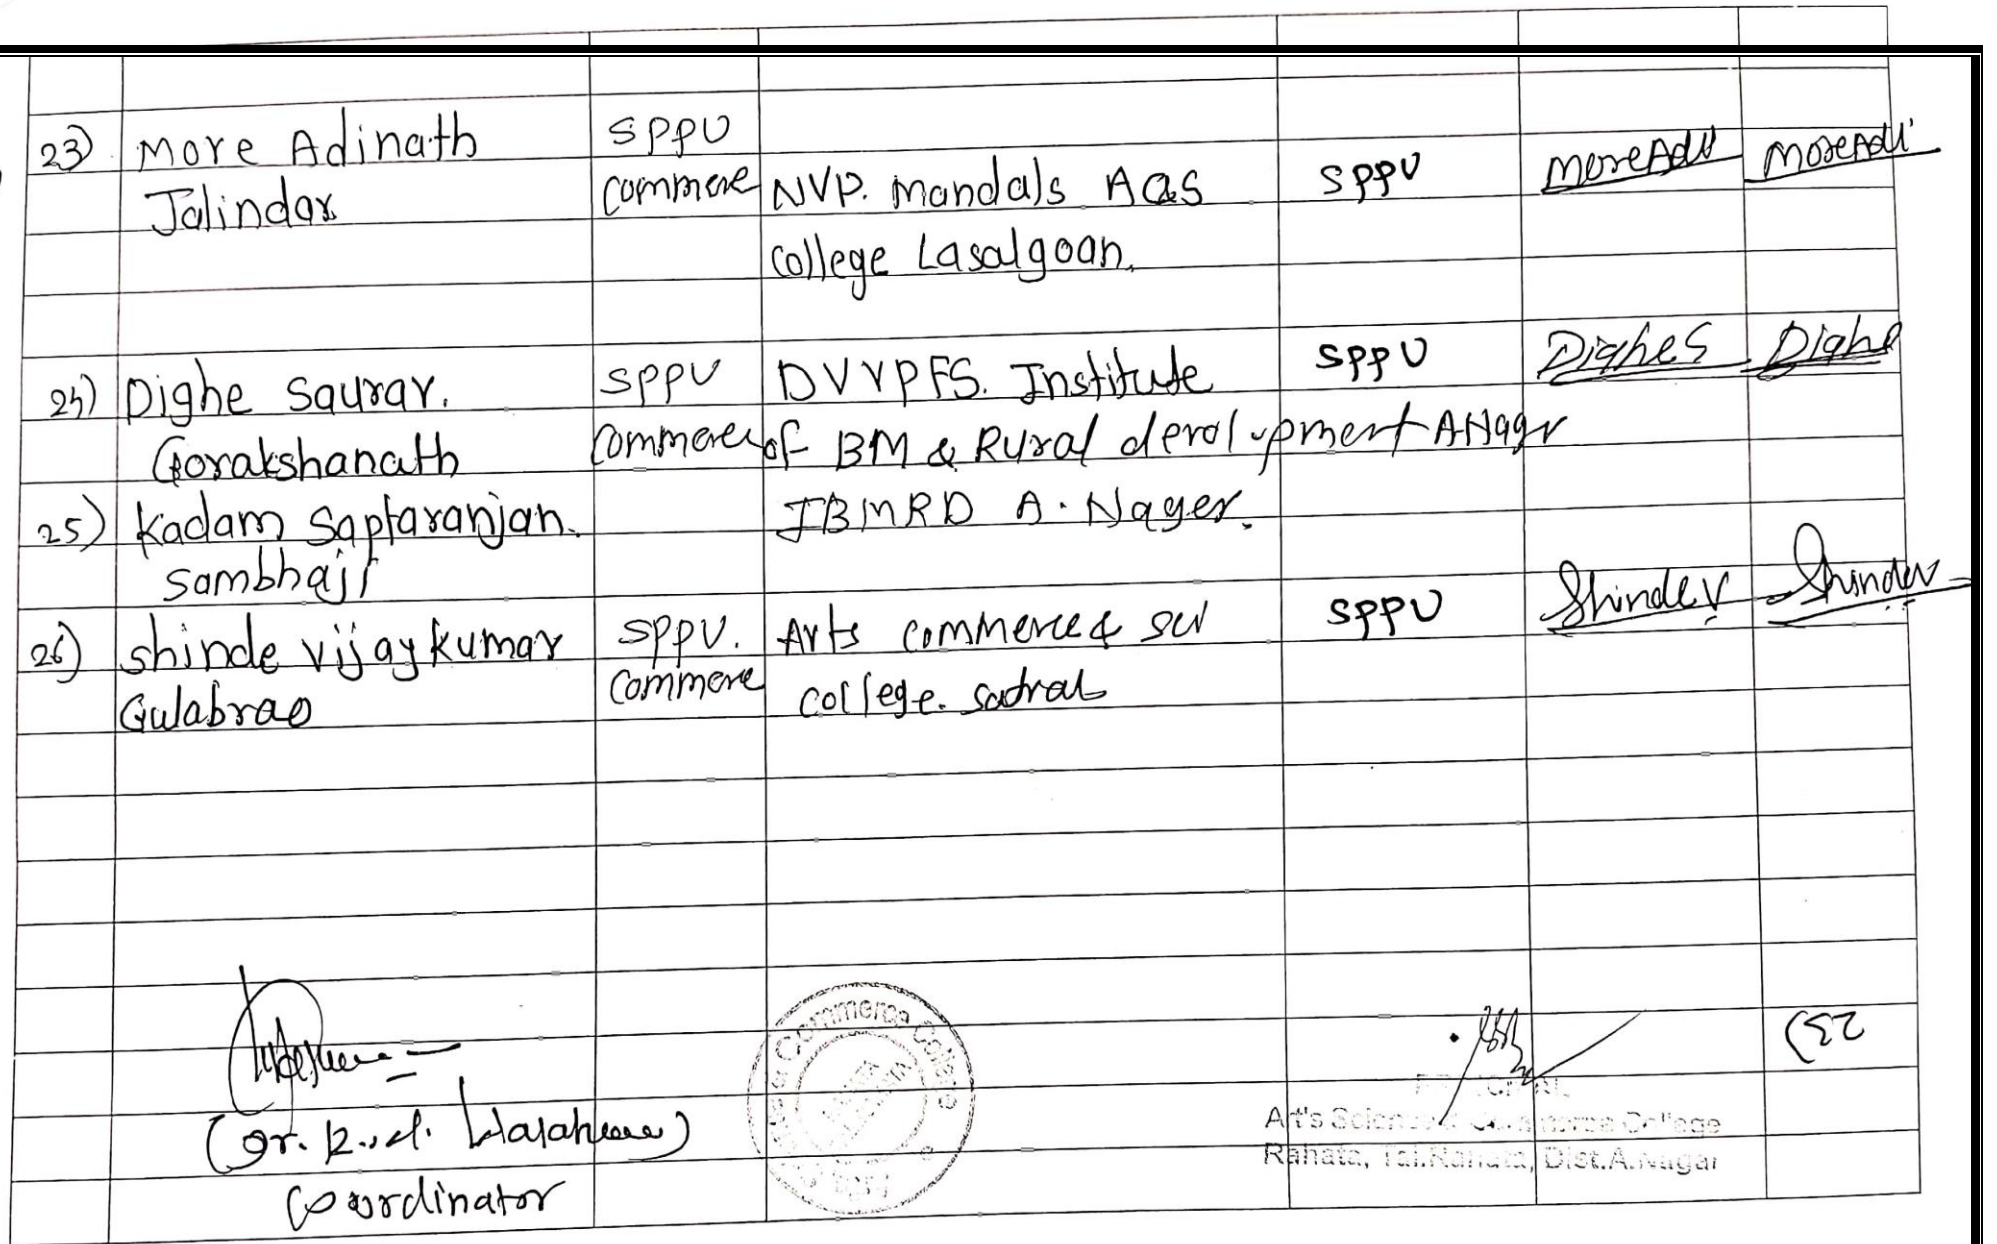 23) More Adinath Jalindar SPPU Commere NVP. Mandals Acs College Lasalgoan. SPPU MoreAdi MoreAdi
24) Dighe Saurav. Gorakshanath SPPU Commerce DVVPFS. Institute of BM & Rural A.Nagr SPPU DigheS Dighe
25) Kadam Saptaranjan. Sambhaji IBMRD A. Nager.
26) Shinde Vijaykumar Gulabrao SPPU. Commere Arts Commerce & College. Satral SPPU ShindeV ShindeV
23)
Coordinator
Commerce College
Art's Science Commerce College
Rahata, Tal.Rahata, Dist.A.Nagar